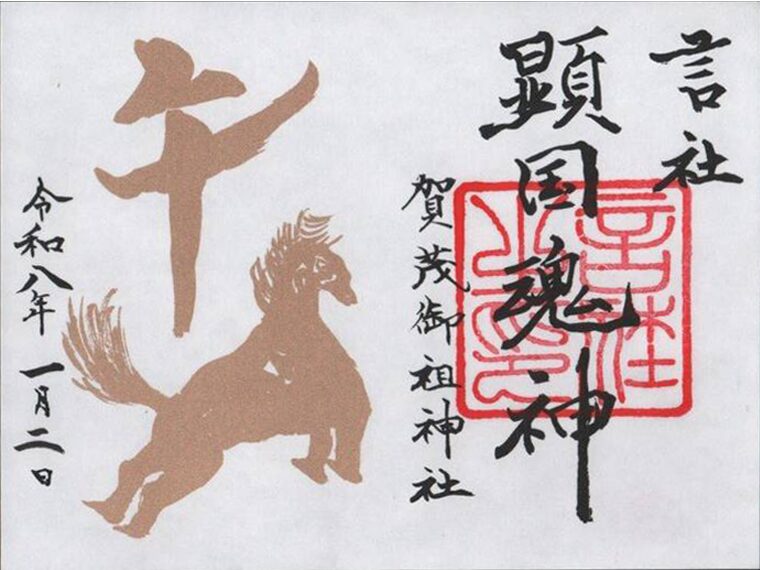 言社
顕国魂神
賀茂御祖神社
午
令和八年一月二日
言社之印